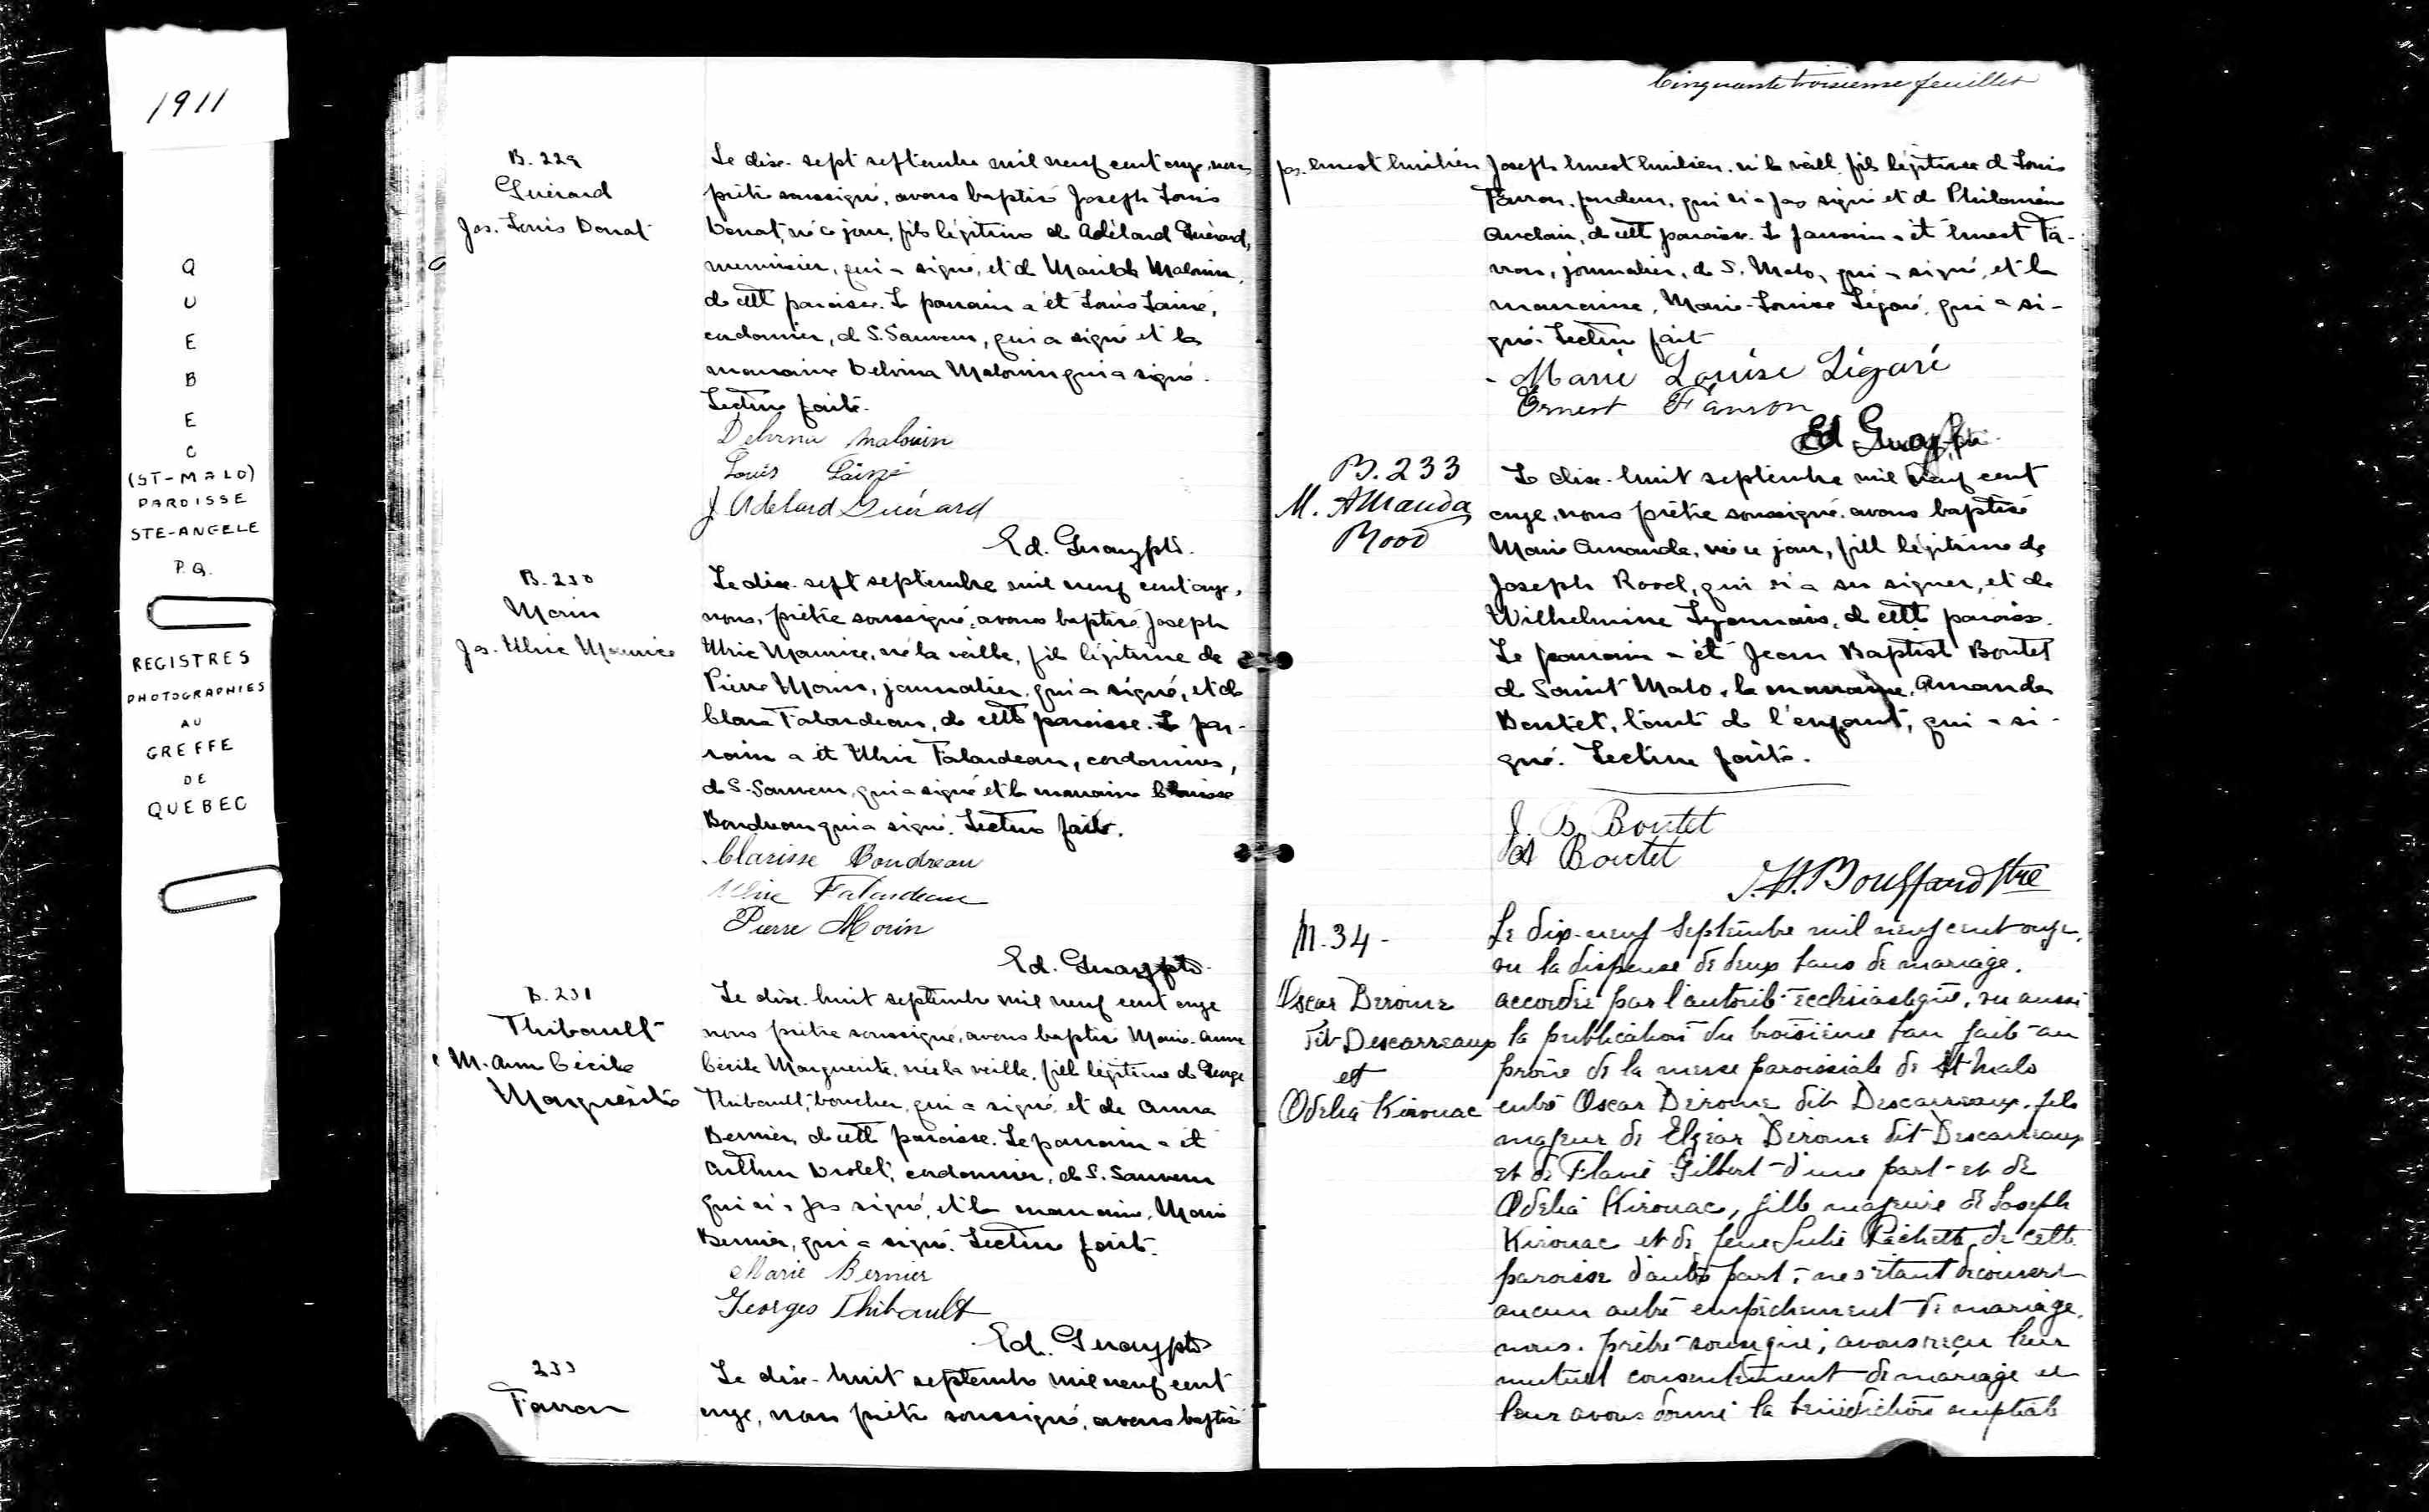 1911
QUEBEC
(ST-MALO)
PAROISSE
STE-ANGELE
P.Q.
REGISTRES
PHOTOGRAPHIES
AU
GREFFE
DE
QUEBEC
B. 229
Guérard
Jos. Louis Donat
Le dix-sept septembre mil neuf cent onze, nous
prêtre soussigné, avons baptisé Joseph Louis
Donat, né ce jour, fils légitime de Adélard Guérard,
menuisier, qui a signé, et de Malouin,
de cette paroisse. Le parrain a été Louis Lainé,
cordonnier, de S. Sauveur, qui a signé et la
marraine Delvina Malouin qui a signé.
Lecture faite.
Delvina Malouin
Louis Lainé
J. Adelard Guérard
Ed. Guay ptre.
B. 230
Morin
Jos. Ulric Maurice
Le dix-sept septembre mil neuf cent onze,
nous, prêtre soussigné, avons baptisé Joseph
Ulric Maurice, né la veille, fils légitime de
Pierre Morin, journalier, qui a signé, et de
Clara Falardeau, de cette paroisse. Le par-
rain a été Ulric Falardeau, cordonnier,
de S. Sauveur, qui a signé et la marraine Clarisse
Boudreau qui a signé. Lecture faite.
Clarisse Boudreau
Ulric Falardeau
Pierre Morin
Ed. Guay ptre.
B. 231
Thibault
M. Ann Cécile
Marguerite
Le dix-huit septembre mil neuf cent onze
nous prêtre soussigné, avons baptisé Marie-Anne
Cécile Marguerite, née la veille, fille légitime de George
Thibault, boucher, qui a signé, et de Anna
Bernier, de cette paroisse. Le parrain a été
Arthur Drolet, cordonnier, de S. Sauveur
qui n'a pas signé, et la marraine, Marie
Bernier, qui a signé. Lecture faite.
Marie Bernier
Georges Thibault
Ed. Guay ptre
Le dix-huit septembre mil neuf cent
onze, nous prêtre soussigné, avons baptisé
Cinquante troisieme feuillet
Jos. Ernest Emilien
Joseph Ernest Emilien, né la veille, fils légitime de Louis
qui n'a pas signé et de Philomène
Auclair, de cette paroisse. Le parrain a été Ernest
journalier, de S. Malo, qui a signé, et la
marraine, Marie-Louise Légaré, qui a si-
gné. Lecture faite
Marie Louise Légaré
Ernest
Ed Guay ptre.
B. 233
M. Amanda
Rood
Le dix-huit septembre mil neuf cent
onze, nous prêtre soussigné, avons baptisé
Marie Amanda, née ce jour, fille légitime de
Joseph Rood, qui n'a su signer, et de
Wilhelmine Lyonnais, de cette paroisse.
Le parrain a été Jean Baptiste Boutet
de Saint Malo, la marraine, Amanda
Boutet, tante de l'enfant, qui a si-
gné. Lecture faite.
J. B. Boutet
A Boutet
J. H. Bouffard Ptre
M. 34 -
Oscar Derome
dit Descarreaux
et
Odelia Kirouac
Le dix-neuf septembre mil neuf cent onze,
vu la dispense de deux bans de mariage,
accordée par l'autorité ecclésiastique, vu aussi
la publication du troisième ban faite au
prône de la messe paroissiale de St Malo
entre Oscar Derome dit Descarreaux, fils
majeur de Elzéar Derome dit Descarreaux
et de Flavie Gilbert d'une part - et de
Odelia Kirouac, fille majeure de Joseph
Kirouac et de feue Julie Pichette, de cette
paroisse d'autre part; ne s'étant découvert
aucun autre empêchement de mariage,
nous, prêtre soussigné, avons reçu leur
mutuel consentement de mariage et
leur avons donné la bénédiction nuptiale